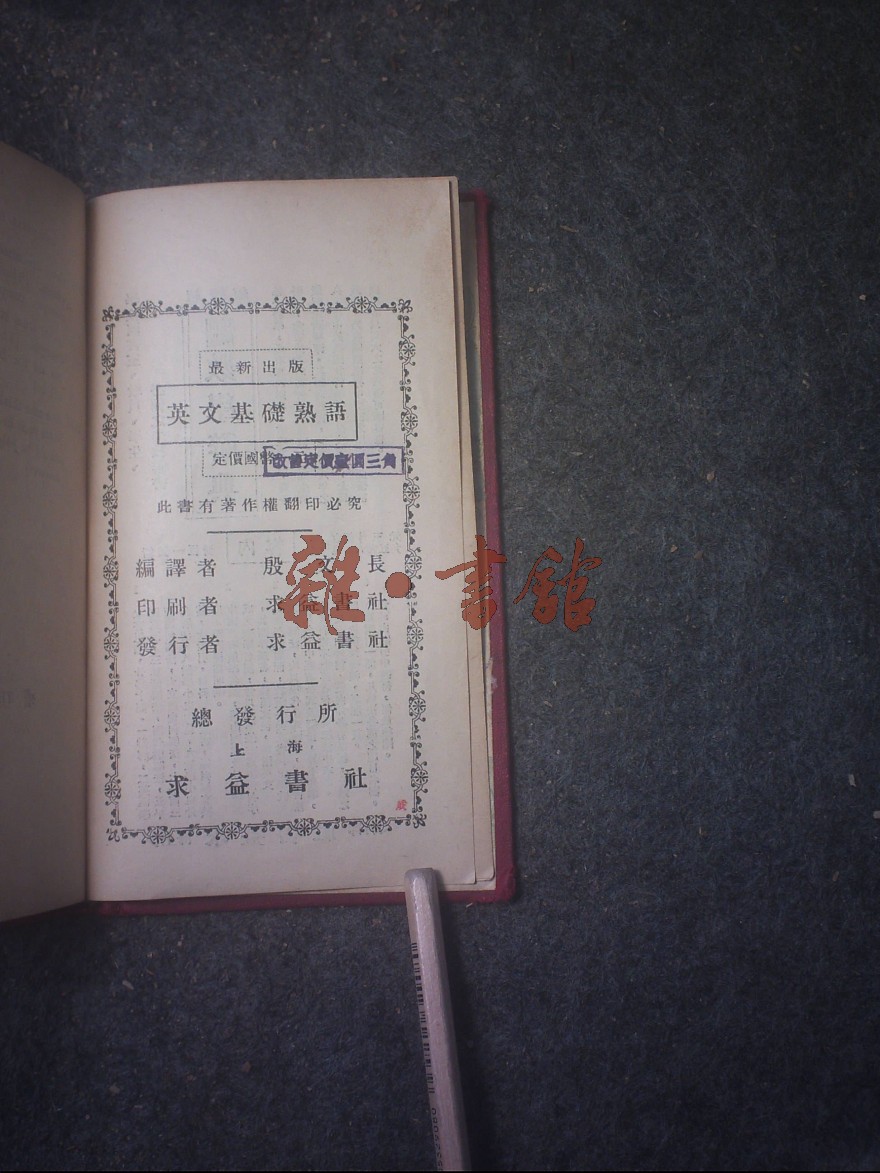 最新出版
英文基礎熟語
定價國幣
改售定價壹圓三角
此書有著作權翻印必究
編譯者 殷文長
印刷者 求益書社
發行者 求益書社
雜·書館
總發行所
上海
求益書社